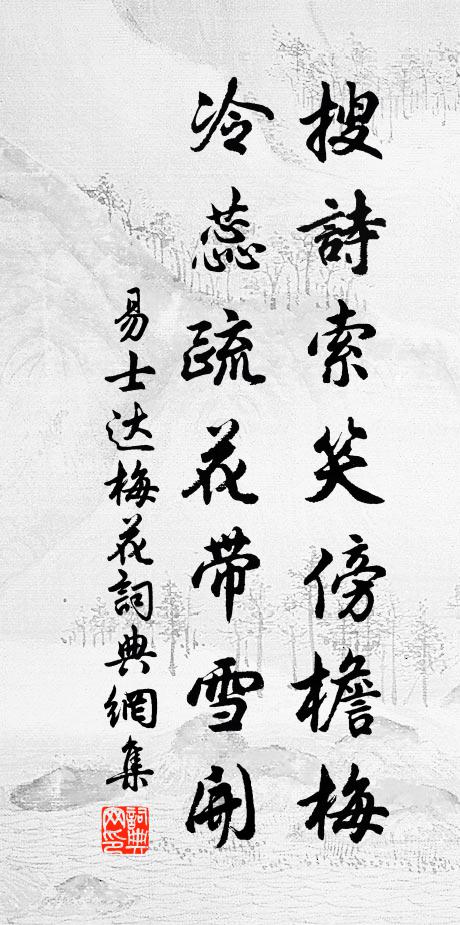 搜詩索笑傍檐梅
冷蕊疏花帶雪開
易士达梅花詞典網集
詞典網印